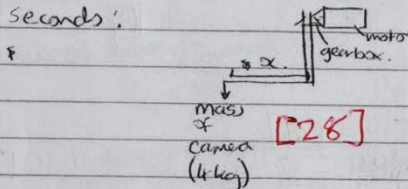 seconds:
moto
gearbox.
x.
mass
of
camera
(4kg)
[28]